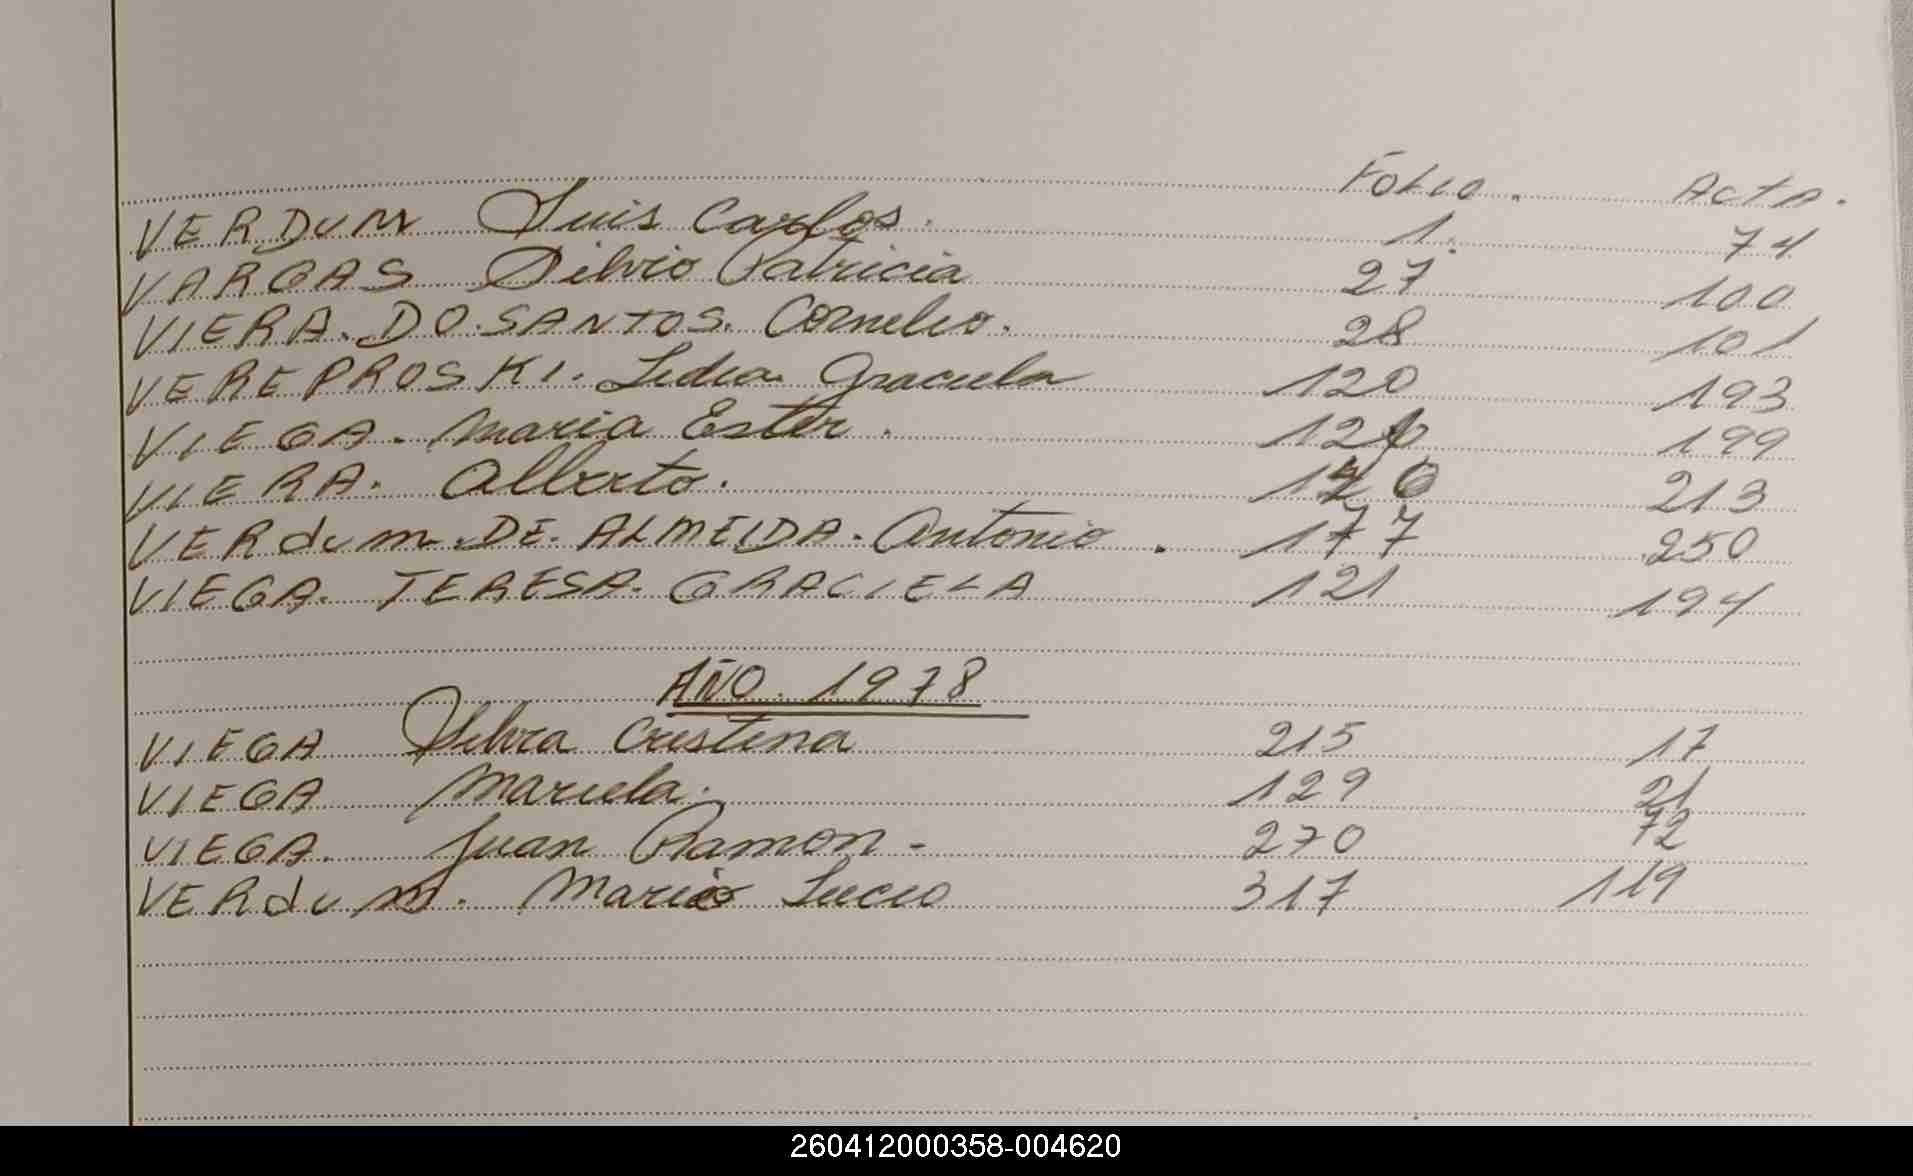 FOLIO. ACTA.
VERDUM Luis Carlos. 1. 74
VARGAS Silvio Patricia 27 100
VIERA. DO. SANTOS. Cornelio. 28 101
VEREPROSKI. Lidia Graciela 120 193
VIEGA. Maria Ester. 199
VIERA. Alberto. 213
VERdum. DE. ALMEIDA. Antonio. 177 250
VIEGA. TERESA. GRACIELA 121 194
AÑO. 1978
VIEGA Silvia Cristina 215 17
VIEGA Mariela. 129 21
VIEGA. Juan Ramon - 270 72
VERdum. Mario Lucio 317 119
260412000358-004620